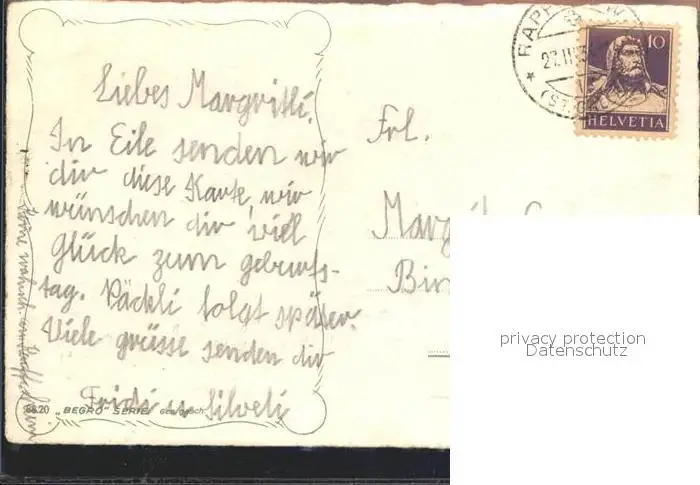 Liebes Margritli.
In Eile senden wir
dir diese Karte, wir
wünschen dir viel
Glück zum geburts-
tag. Päckli folgt später.
Viele grüsse senden dir
Fridi u. Silveli
6620 „BEGRO" SERIE Ges. gesch.
Frl.
Bin
10
HELVETIA
RAPP
(ST. GALLEN)
privacy protection
Datenschutz